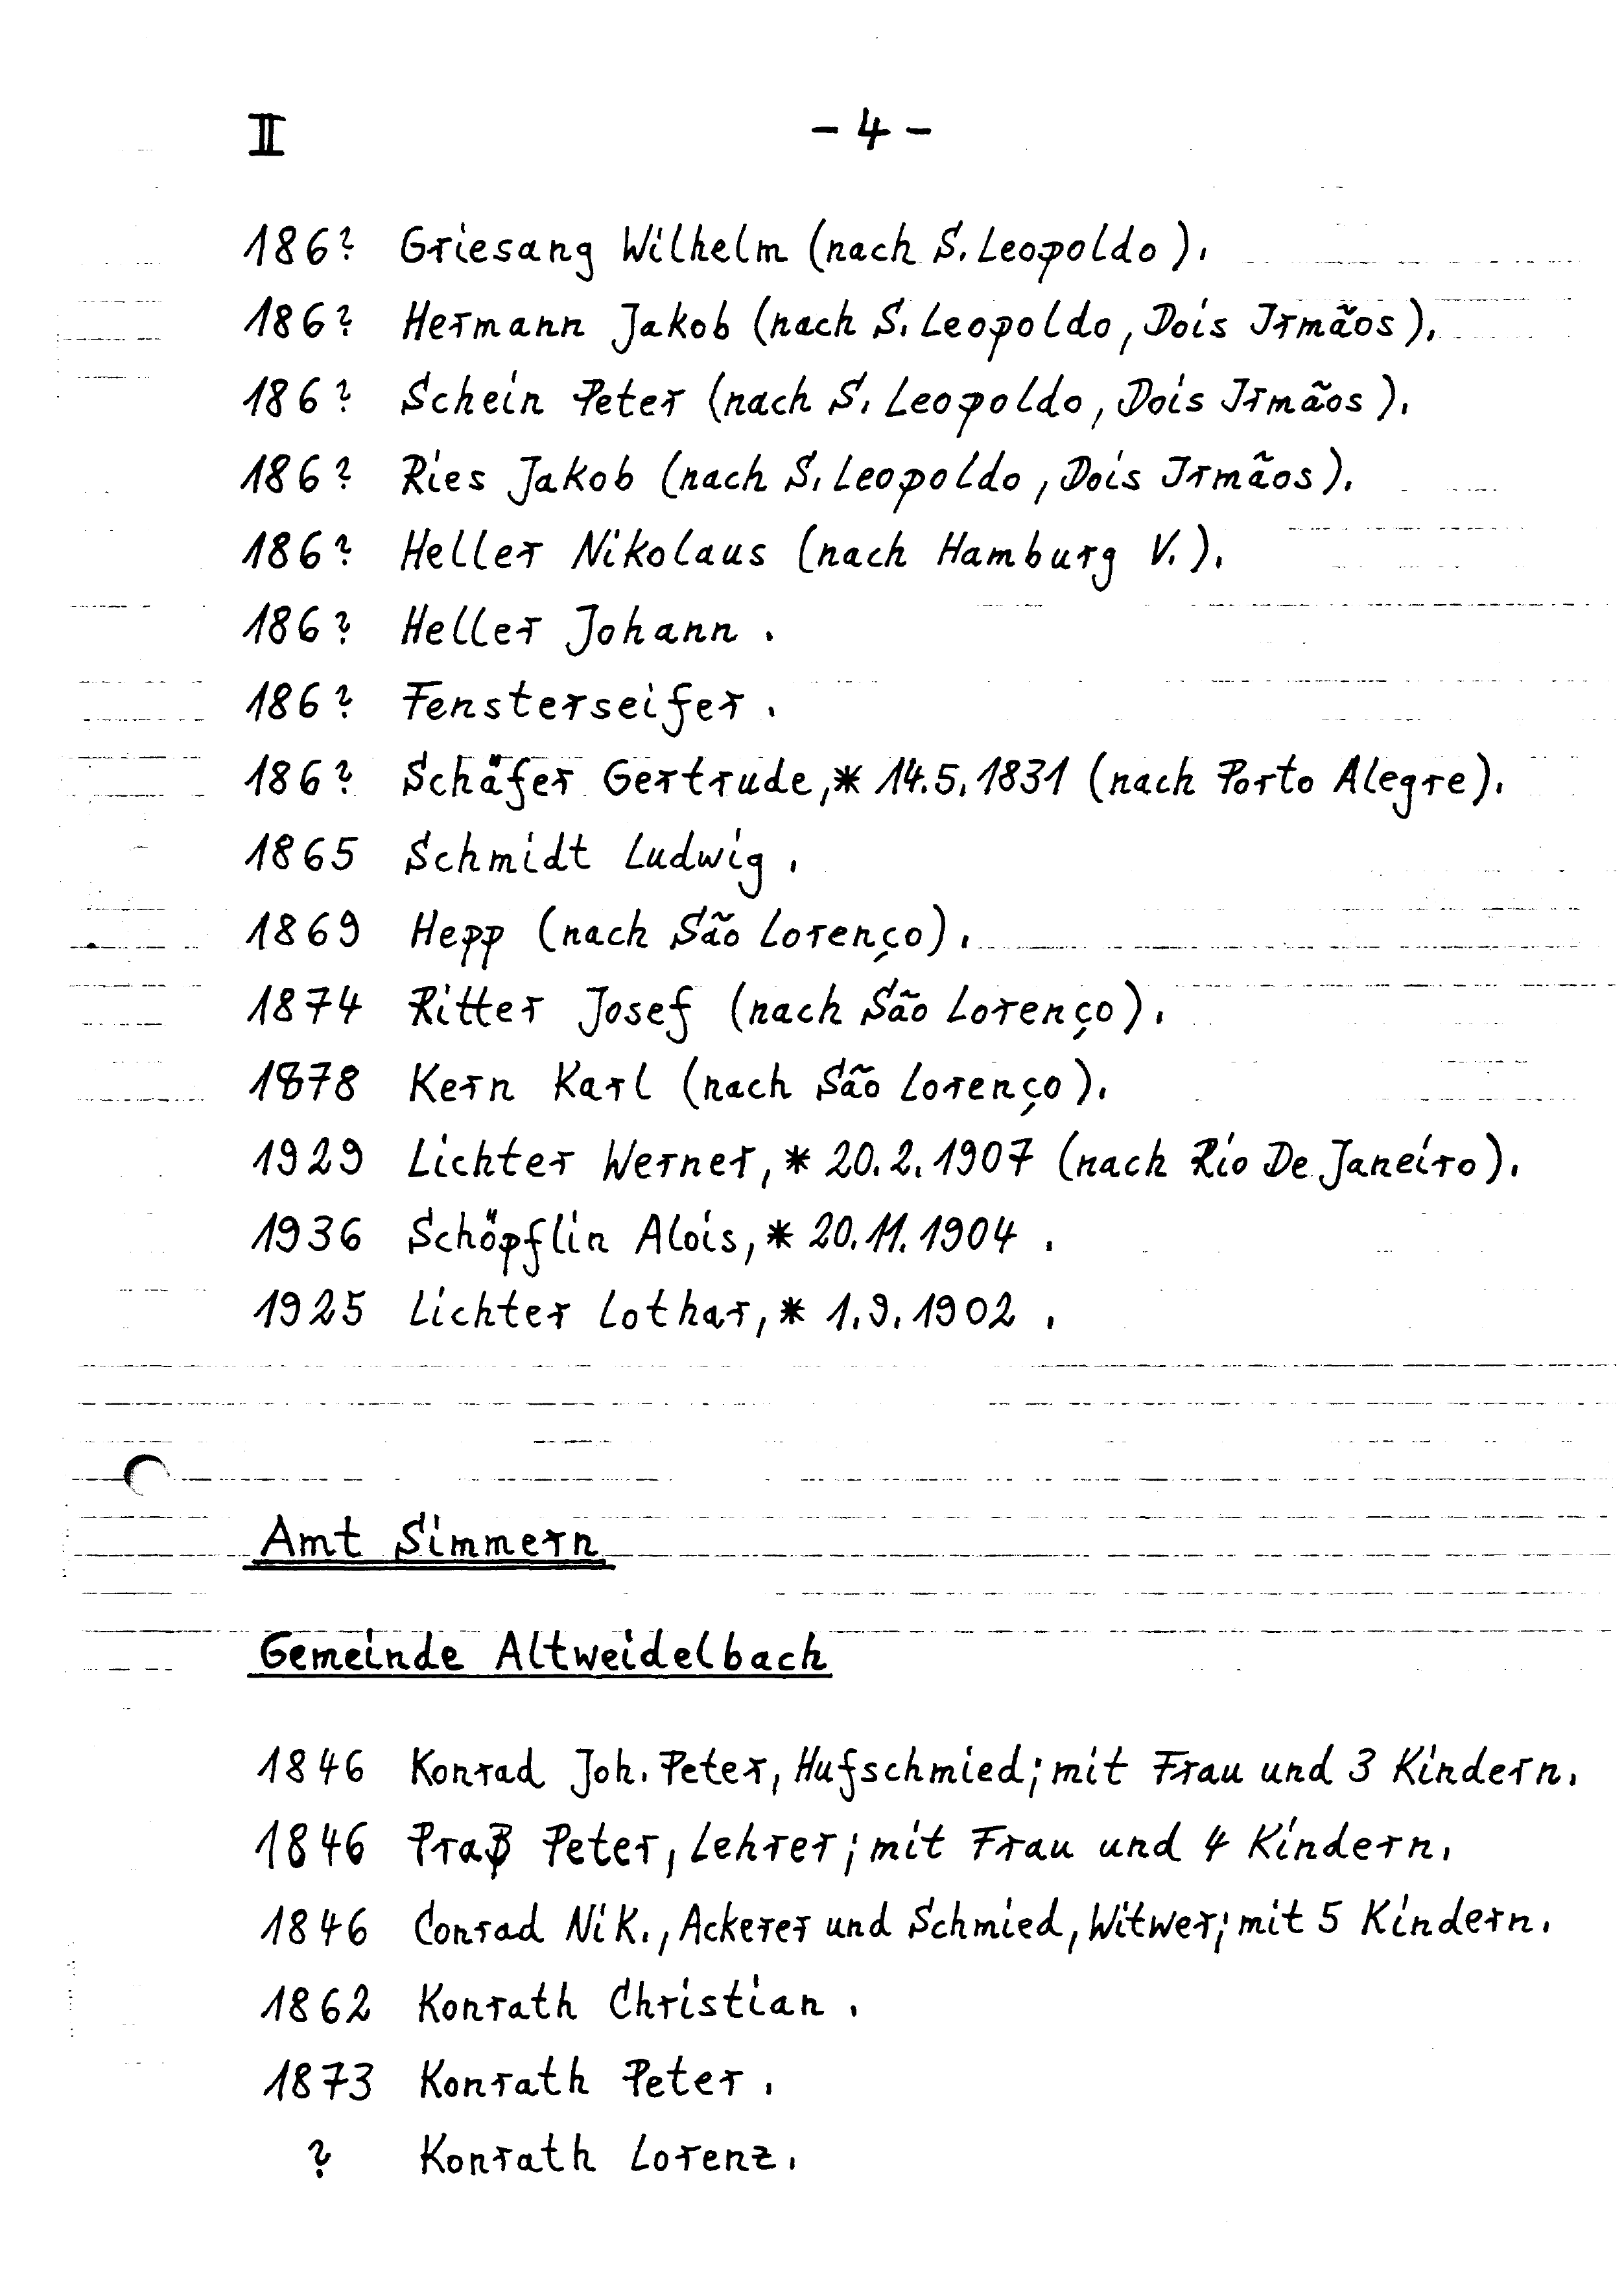 II - 4 -
186? Griesang Wilhelm (nach S. Leopoldo).
186? Hermann Jakob (nach S. Leopoldo, Dois Irmãos).
186? Schein Peter (nach S. Leopoldo, Dois Irmãos).
186? Ries Jakob (nach S. Leopoldo, Dois Irmãos).
186? Heller Nikolaus (nach Hamburg V.).
186? Heller Johann.
186? Fensterseifer.
186? Schäfer Gertrude, * 14.5.1831 (nach Porto Alegre).
1865 Schmidt Ludwig.
1869 Hepp (nach São Lorenço).
1874 Ritter Josef (nach São Lorenço).
1878 Kern Karl (nach São Lorenço).
1929 Lichter Werner, * 20.2.1907 (nach Rio De Janeiro).
1936 Schöpflin Alois, * 20.11.1904.
1925 Lichter Lothar, * 1.9.1902.
Amt Simmern
Gemeinde Altweidelbach
1846 Konrad Joh. Peter, Hufschmied; mit Frau und 3 Kindern.
1846 Praß Peter, Lehrer; mit Frau und 4 Kindern.
1846 Conrad Nik., Ackerer und Schmied, Witwer; mit 5 Kindern.
1862 Konrath Christian.
1873 Konrath Peter.
? Konrath Lorenz.